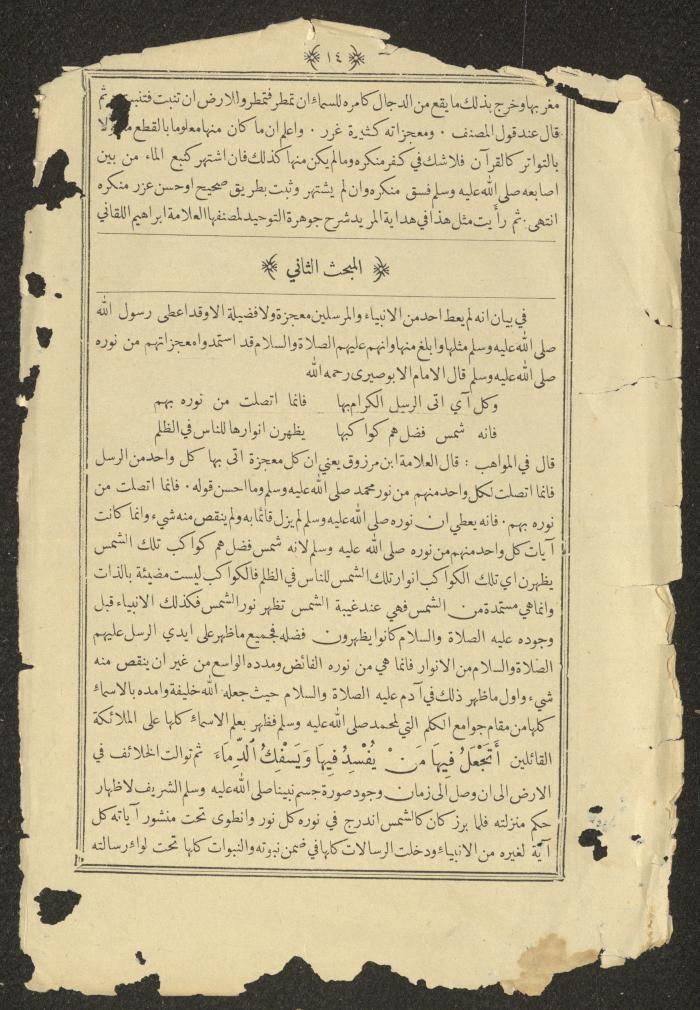 ١٤
مغربها وخرج بذلك ما يقع من الدجال كامره للسماء ان تمطر فتمطر والارض ان تنبت فتنبت ثم
قال عند قول المصنف ٠ ومعجزاته كثيرة غرر ٠ واعلم ان ما كان منها معلوما بالقطع
بالتواتر كالقرآن فلا شك في كفر منكره وما لم يكن منها كذلك فان اشتهر كنبع الماء من بين
اصابعه صلى الله عليه وسلم فسق منكره وان لم يشتهر وثبت بطريق صحيح او حسن عزر منكره
انتهى ٠ ثم رأيت مثل هذا في هداية المريد شرح جوهرة التوحيد لمصنفها العلامة ابراهيم اللقاني
المبحث الثاني
في بيان انه لم يعط احد من الانبياء والمرسلين معجزة ولا فضيلة الا وقد اعطى رسول الله
صلى الله عليه وسلم مثلها وابلغ منها وانهم عليهم الصلاة والسلام قد استمدوا معجزاتهم من نوره
صلى الله عليه وسلم قال الامام الابوصيرى رحمه الله
وكل آي اتى الرسل الكرام بها فانما اتصلت من نوره بهم
فانه شمس فضل هم كواكبها يظهرن انوارها للناس في الظلم
قال في المواهب : قال العلامة ابن مرزوق يعني ان كل معجزة اتى بها كل واحد من الرسل
فانما اتصلت لكل واحد منهم من نور محمد صلى الله عليه وسلم وما احسن قوله ٠ فانما اتصلت من
نوره بهم ٠ فانه يعطي ان نوره صلى الله عليه وسلم لم يزل قائما به ولم ينقص منه شيء وانما كانت
آيات كل واحد منهم من نوره صلى الله عليه وسلم لانه شمس فضل هم كواكب تلك الشمس
يظهرن اي تلك الكواكب انوار تلك الشمس للناس في الظلم فالكواكب ليست مضيئة بالذات
وانما هي مستمدة من الشمس فهي عند غيبة الشمس تظهر نور الشمس فكذلك الانبياء قبل
وجوده عليه الصلاة والسلام كانوا يظهرون فضله فجميع ما ظهر على ايدي الرسل عليهم
الصلاة والسلام من الانوار فانما هي من نوره الفائض ومدده الواسع من غير ان ينقص منه
شيء واول ما ظهر ذلك في آدم عليه الصلاة والسلام حيث جعله الله خليفة وامده بالاسماء
كلها من مقام جوامع الكلم التي لمحمد صلى الله عليه وسلم فظهر بعلم الاسماء كلها على الملائكة
القائلين أَتَجْعَلُ فِيهَا مَنْ يُفْسِدُ فِيهَا وَيَسْفِكُ الدِّمَاءَ ثم توالت الخلائف في
الارض الى ان وصل الى زمان وجود صورة جسم نبينا صلى الله عليه وسلم الشريف لاظهار
حكم منزلته فلما برز كان كالشمس اندرج في نوره كل نور وانطوى تحت منشور آياته كل
آية لغيره من الانبياء ودخلت الرسالات كلها في ضمن نبوته والنبوات كلها تحت لواء رسالته